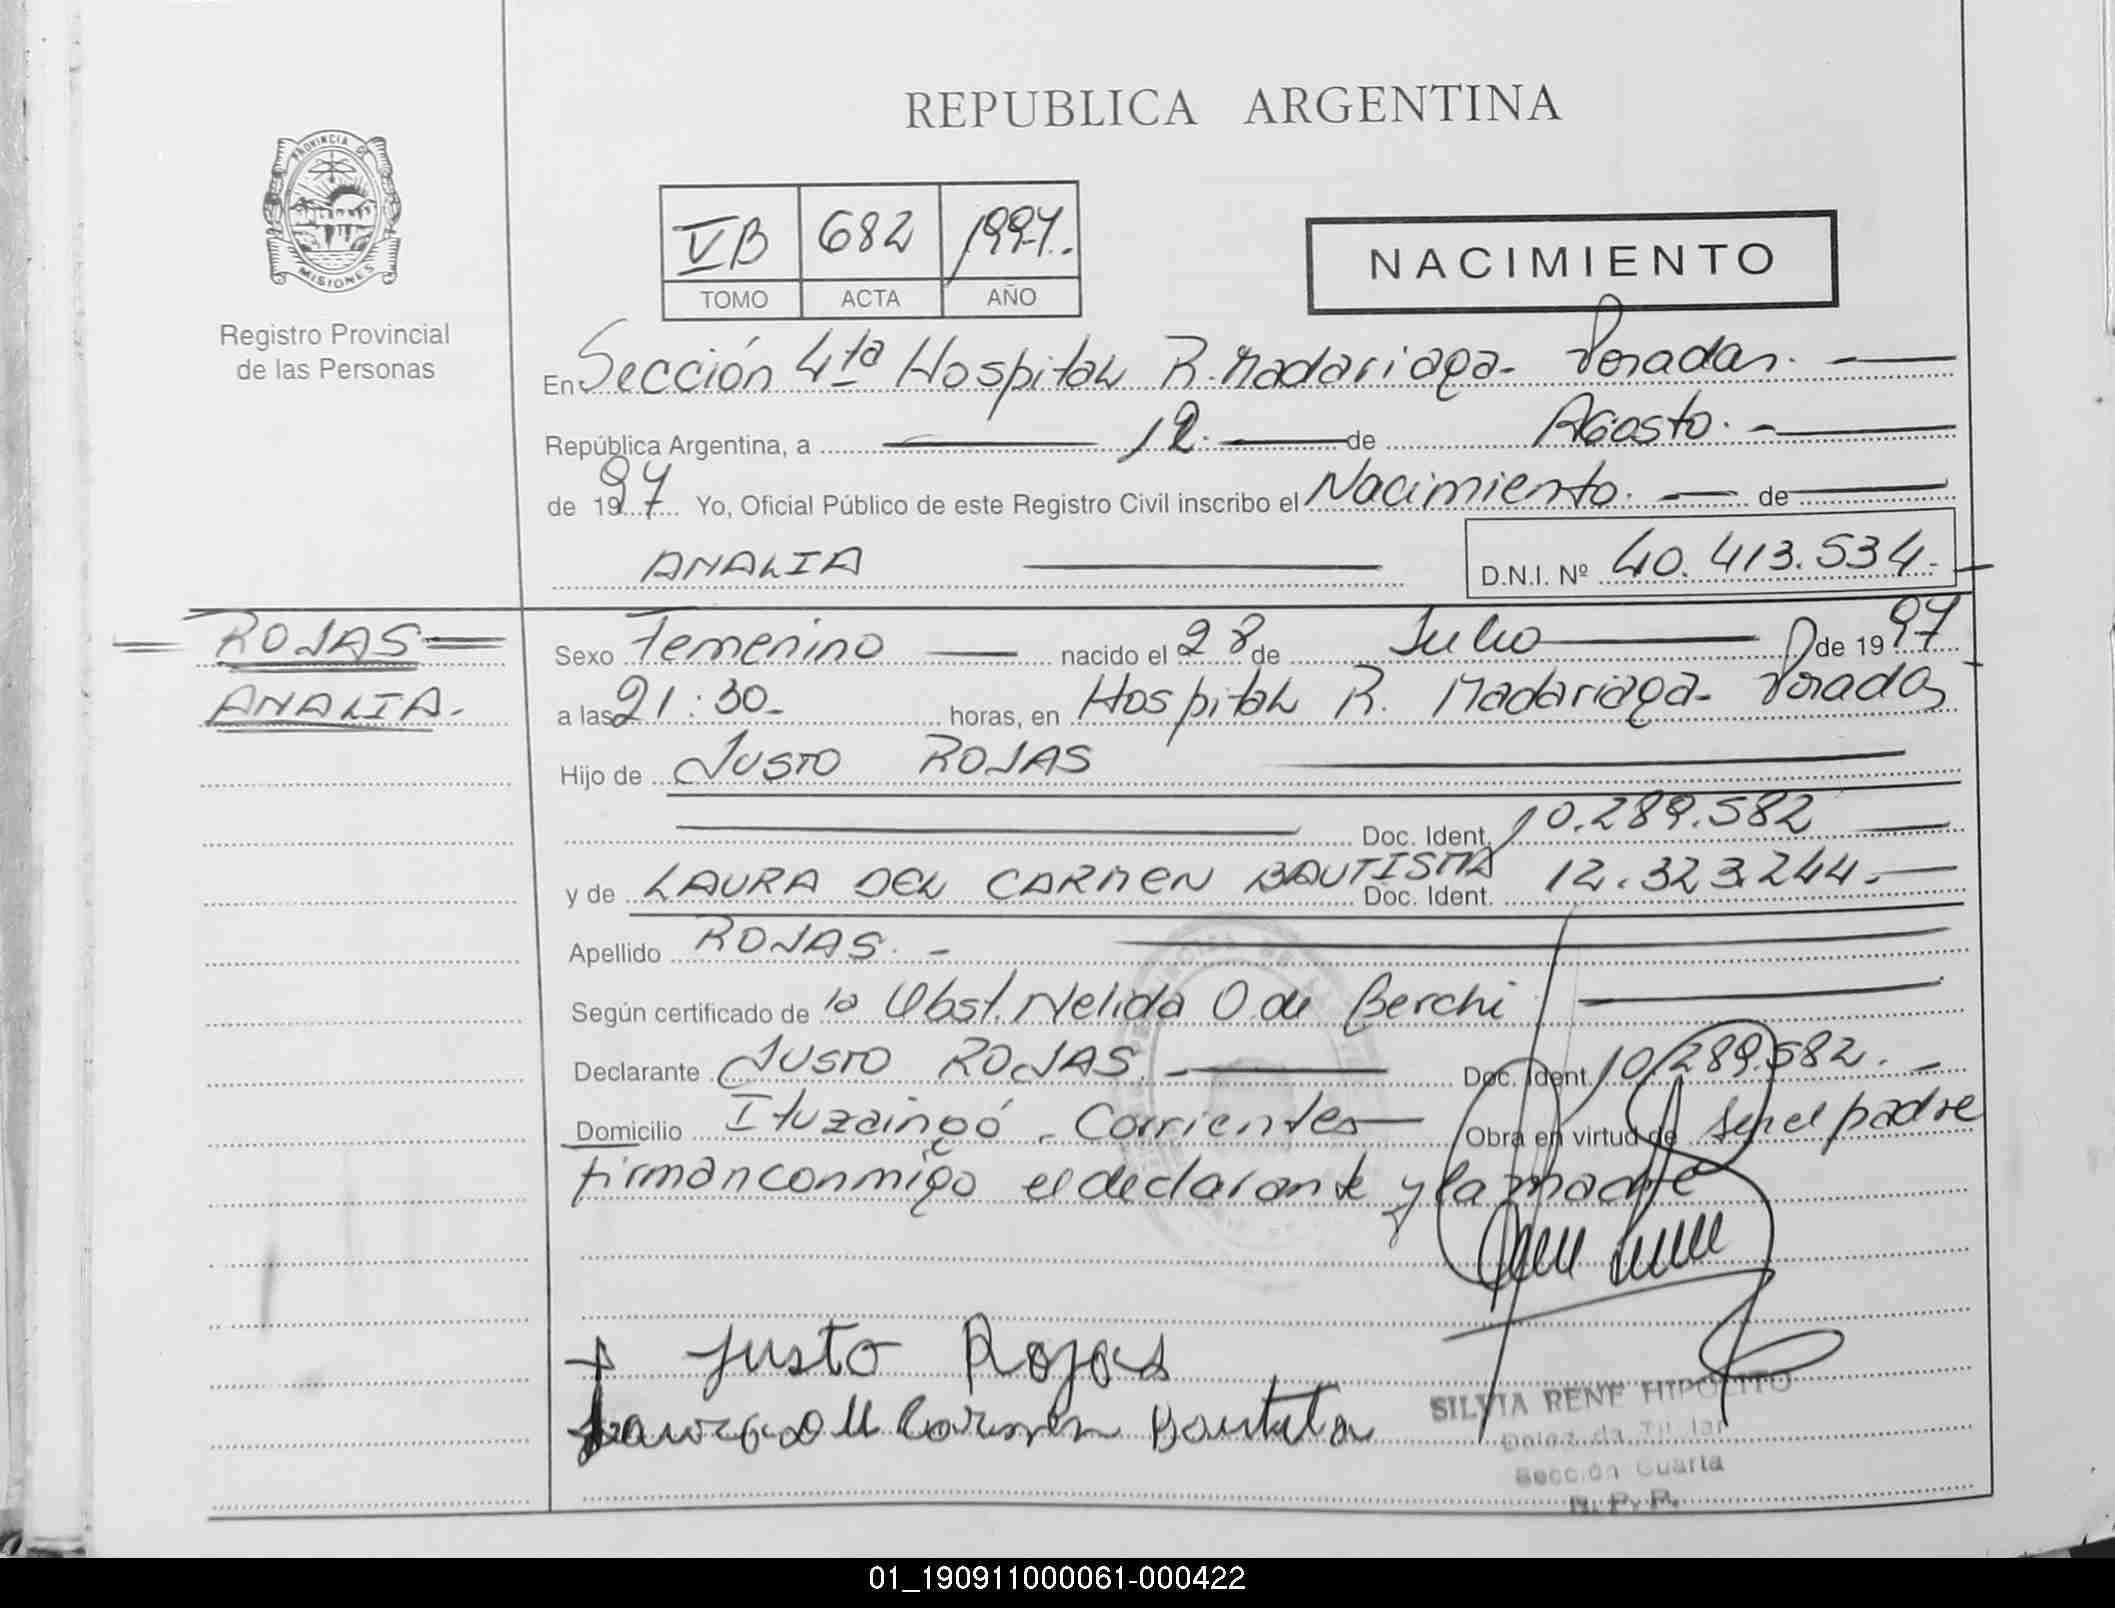 REPUBLICA ARGENTINA
PROVINCIA DE
MISIONES
Registro Provincial
de las Personas
VB 682 1997.
TOMO ACTA AÑO
NACIMIENTO
En Sección 4ta Hospital R. Madariaga - Posadas.
República Argentina, a 12. de Agosto.
de 1997 Yo, Oficial Público de este Registro Civil inscribo el Nacimiento. de
ANALIA D.N.I. Nº 40.413.534.
ROJAS
ANALIA.
Sexo Femenino nacido el 28 de Julio de 1997
a las 21:30. horas, en Hospital R. Madariaga - Posadas
Hijo de JUSTO ROJAS
Doc. Ident. 10.289.582
y de LAURA DEL CARMEN BAUTISTA Doc. Ident. 12.323.244.
Apellido ROJAS.
Según certificado de la Obst. Nelida O. de Berchi
Declarante JUSTO ROJAS. Doc. Ident. 10.289.582.
Domicilio Ituzaingó - Corrientes Obra en virtud de ser el padre
firman conmigo el declarante y la madre
Justo Rojas
Laura del Carmen Bautista
SILVIA RENE HIPOLITO
Delegada Titular
Sección Cuarta
R. P. P.
01_190911000061-000422